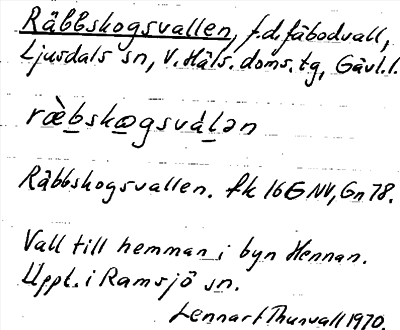 Räbbskogsvallen, f.d. fäbodvall,
Ljusdals sn, V. Häls. doms. tg, Gävl. l.
ræ̀bskogsválən
Räbbskogsvallen. fk 16G NV, Gn 78.
Vall till hemman i byn Hennan.
Uppt. i Ramsjö sn.
Lennart Thunvall 1970.